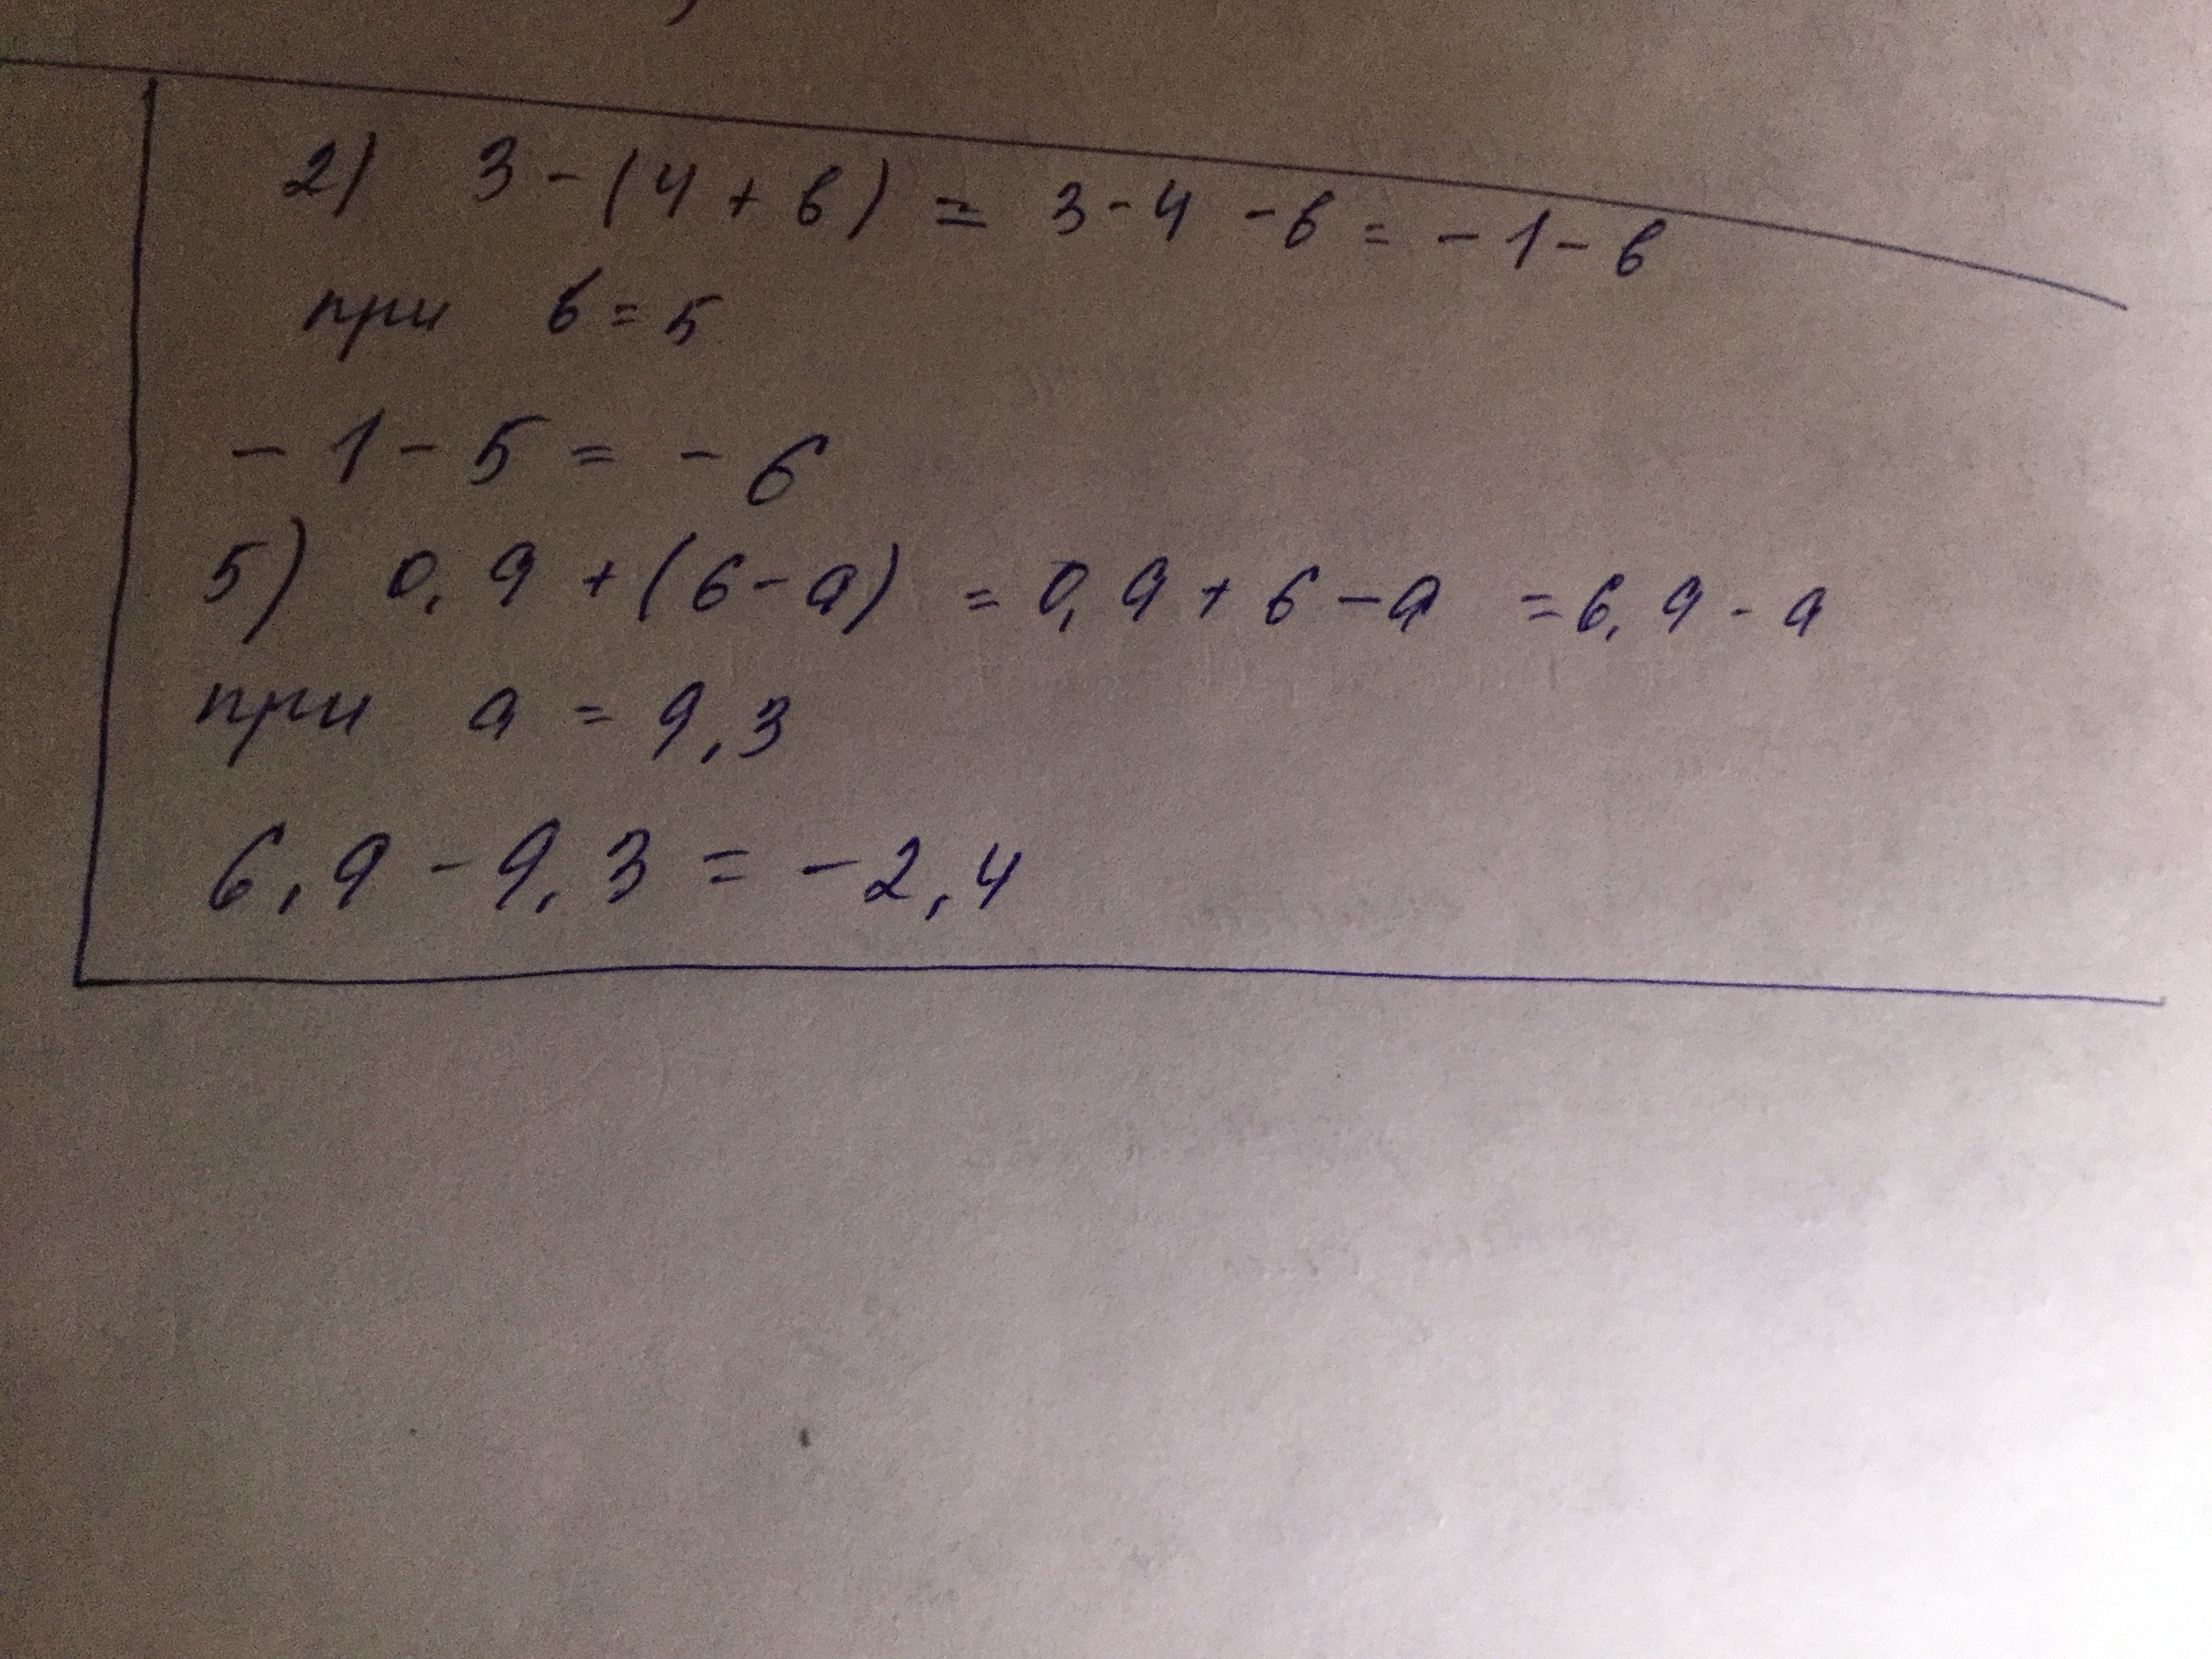 2) 3 - (4 + в) = 3 - 4 - в = - 1 - в
при в = 5
- 1 - 5 = - 6
5) 0,9 + (6 - а) = 0,9 + 6 - а = 6,9 - а
при а = 9,3
6,9 - 9,3 = - 2,4